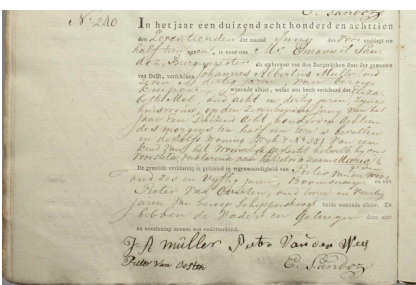 E. Sandoz
No. 240
In het jaar een duizend acht honderd en achttien
den Zeventienden der maand Juny des voormiddags ten
half tien uren, is voor ons Mr. Emanuel San
doz, Burgemeester als ambtenaar van den Burgerlijken staat der gemeente
van Delft, verschenen Johannes Albertus Muller, oud
dertig jaren, van beroep
wonende alhier, welke ons heeft verklaard dat Eliza
beth Mol, oud acht en dertig jaren, zijne
huisvrouw, op den Juny van het
jaar een duizend acht honderd en achttien
des morgens ten half een uren is bevallen
in derzelver woning Wyk No. 351 van een
kind van het geslacht, hetwelk hy ons
voorstelde, verklarende aan hetzelve de naam Maria te
De gemelde verklaring is geschied in tegenwoordigheid van Pieter van der Wey
oud zes en vyftig jaren, en van
Pieter van Oosten, oud twee en veertig
jaren van beroep beide wonende alhier. En
hebben de Vader en Getuigen deze acte
na voorlezing nevens ons onderteekend.
J A Müller Pieter Van der Wey
Pieter Van Oosten E. Sandoz